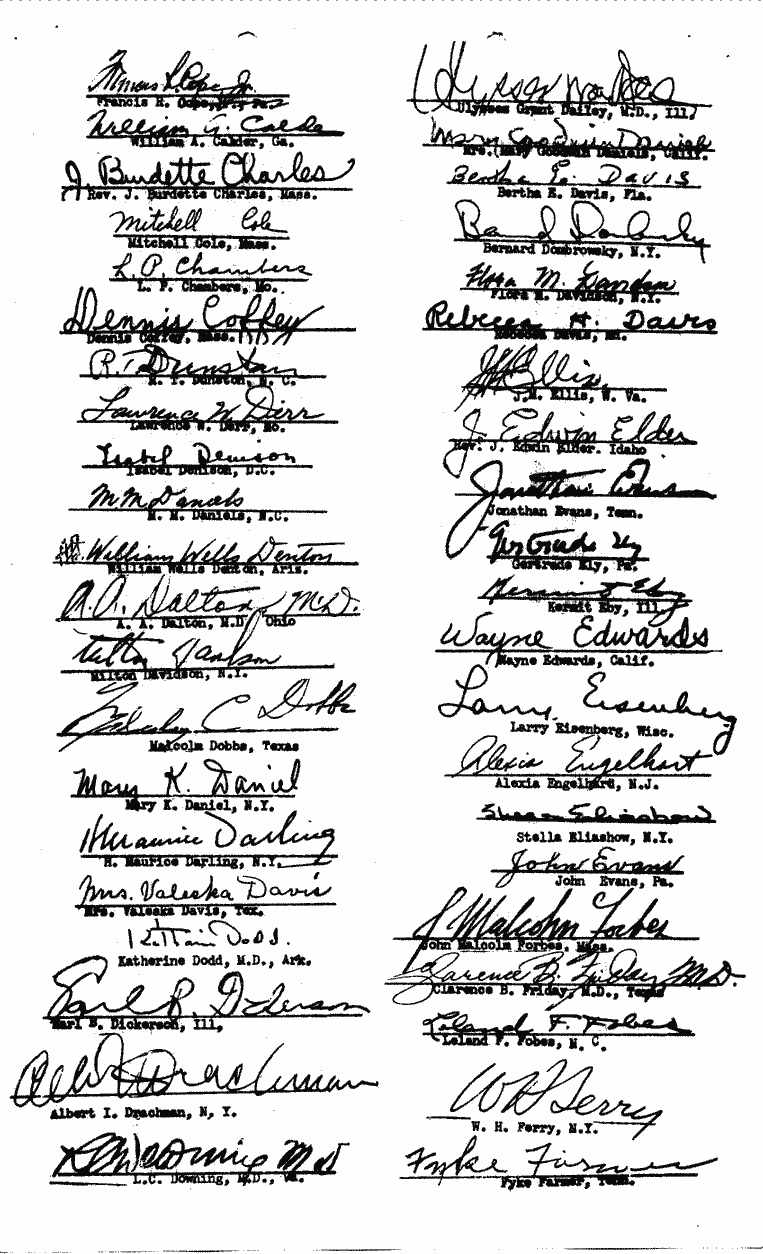 Francis H.
William A. Calder, Ga.
J. Burdette Charles
Rev. J. Burdette Charles, Mass.
Mitchell Cole
Mitchell Cole, Mass.
L. P. Chambers
L. P. Chambers, Mo.
Dennis Coffey
Dennis Coffey, Mass.
R. T. Dunstan
R. T. Dunstan, N. C.
Lawrence W. Derr
Lawrence W. Derr, Mo.
Isabel Denison
Isabel Denison, D.C.
M M Daniels
M. M. Daniels, N.C.
William Wells Denton
William Wells Denton, Ariz.
A. A. Dalton, M.D.
A. A. Dalton, M.D. Ohio
Milton Davidson, N.Y.
Malcolm C Dobbs
Malcolm Dobbs, Texas
Mary K. Daniel
Mary K. Daniel, N.Y.
H Maurice Darling
H. Maurice Darling, N.Y.
Mrs. Valeska Davis
Mrs. Valeska Davis, Tex.
Katherine Dodd, M.D., Ark.
Earl B. Dickerson
Earl B. Dickerson, Ill,
Albert I. Drachman, N. Y.
L.C. Downing, M.D., Va.
Ulysses Grant Dailey, M.D., Ill,
Mrs. (Mary Goodman Daniels, Calif.
Bertha E. Davis
Bertha E. Davis, Fla.
Bernard Dombrowsky, N.Y.
Flora M. Davidson
Flora M. Davidson, N.Y.
Rebecca H. Davis
Rebecca Davis,
J M Ellis
J.M. Ellis, W. Va.
J. Edwin Elder
Rev. J. Edwin Elder. Idaho
Jonathan Evans
Jonathan Evans, Tenn.
Gertrude Ely
Gertrude Ely, Pa.
Kermit Eby
Kermit Eby, Ill
Wayne Edwards
Wayne Edwards, Calif.
Larry Eisenberg
Larry Eisenberg, Wisc.
Alexia Engelhart
Alexia Engelhard, N.J.
Stella Eliashow
Stella Eliashow, N.Y.
John Evans
John Evans, Pa.
J Malcolm Forbes
John Malcolm Forbes, Mass.
Clarence B. Friday M.D.
Clarence B. Friday, M.D., Texas
Leland F. Fobes
Leland F. Fobes, N. C.
W H Ferry
W. H. Ferry, N.Y.
Fyke Farmer
Fyke Farmer, Tenn.